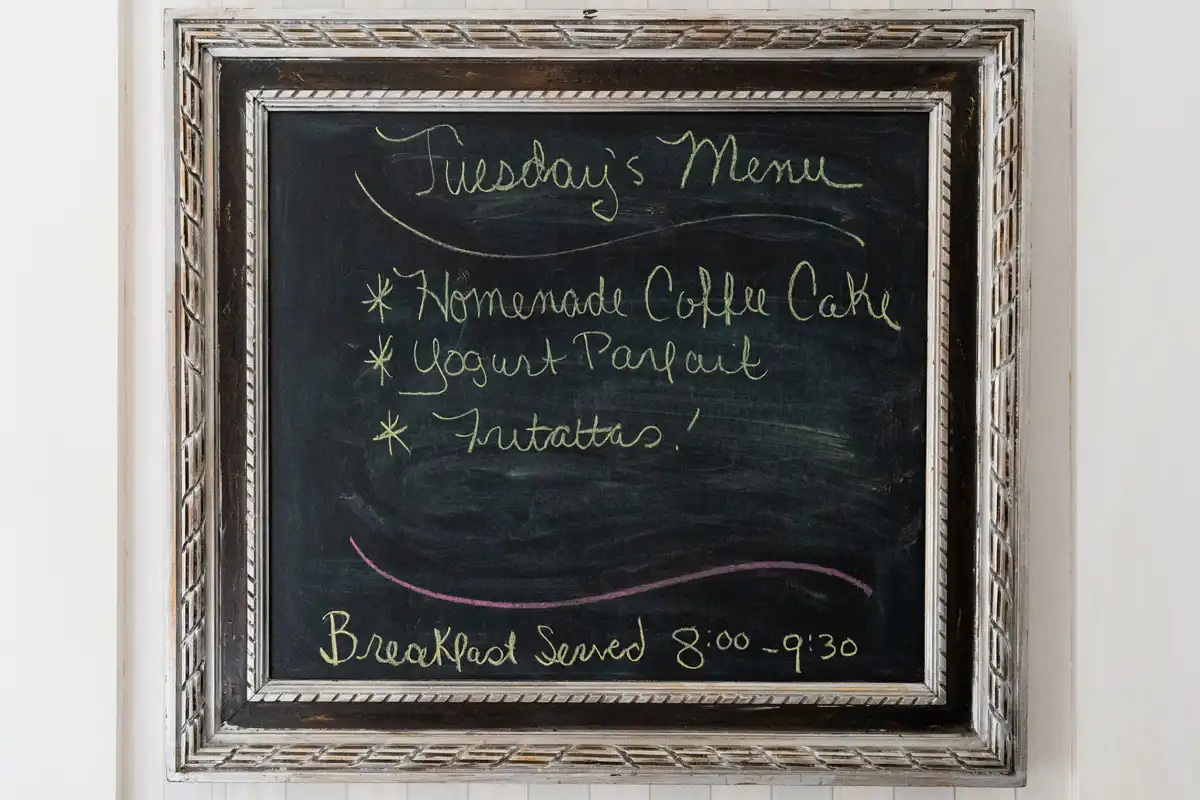 Tuesday's Menu
* Homemade Coffee Cake
* Yogurt Parfait
* Fritattas!
Breakfast Served 8:00-9:30